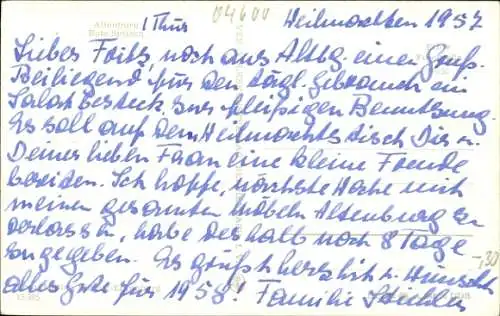 Altenburg
Rote Spitzen
/Thür 04600 Weihnachten 1957
Liebes Fritz, noch aus Altbg. einen Gruß.
Beiliegend für den tägl. Gebrauch ein
Salatbesteck zur fleißigen Benutzung.
Es soll auf dem Weihnachtstisch Dir u.
Deiner lieben Frau eine kleine Freude
bereiten. Ich hoffe, nächste Woche mit
meinen gesamten Möbeln Altenburg zu
verlassen, habe deshalb noch 8 Tage
zugegeben. Es grüßt herzlich u. wünscht
alles Gute für 1958! Familie
-,30